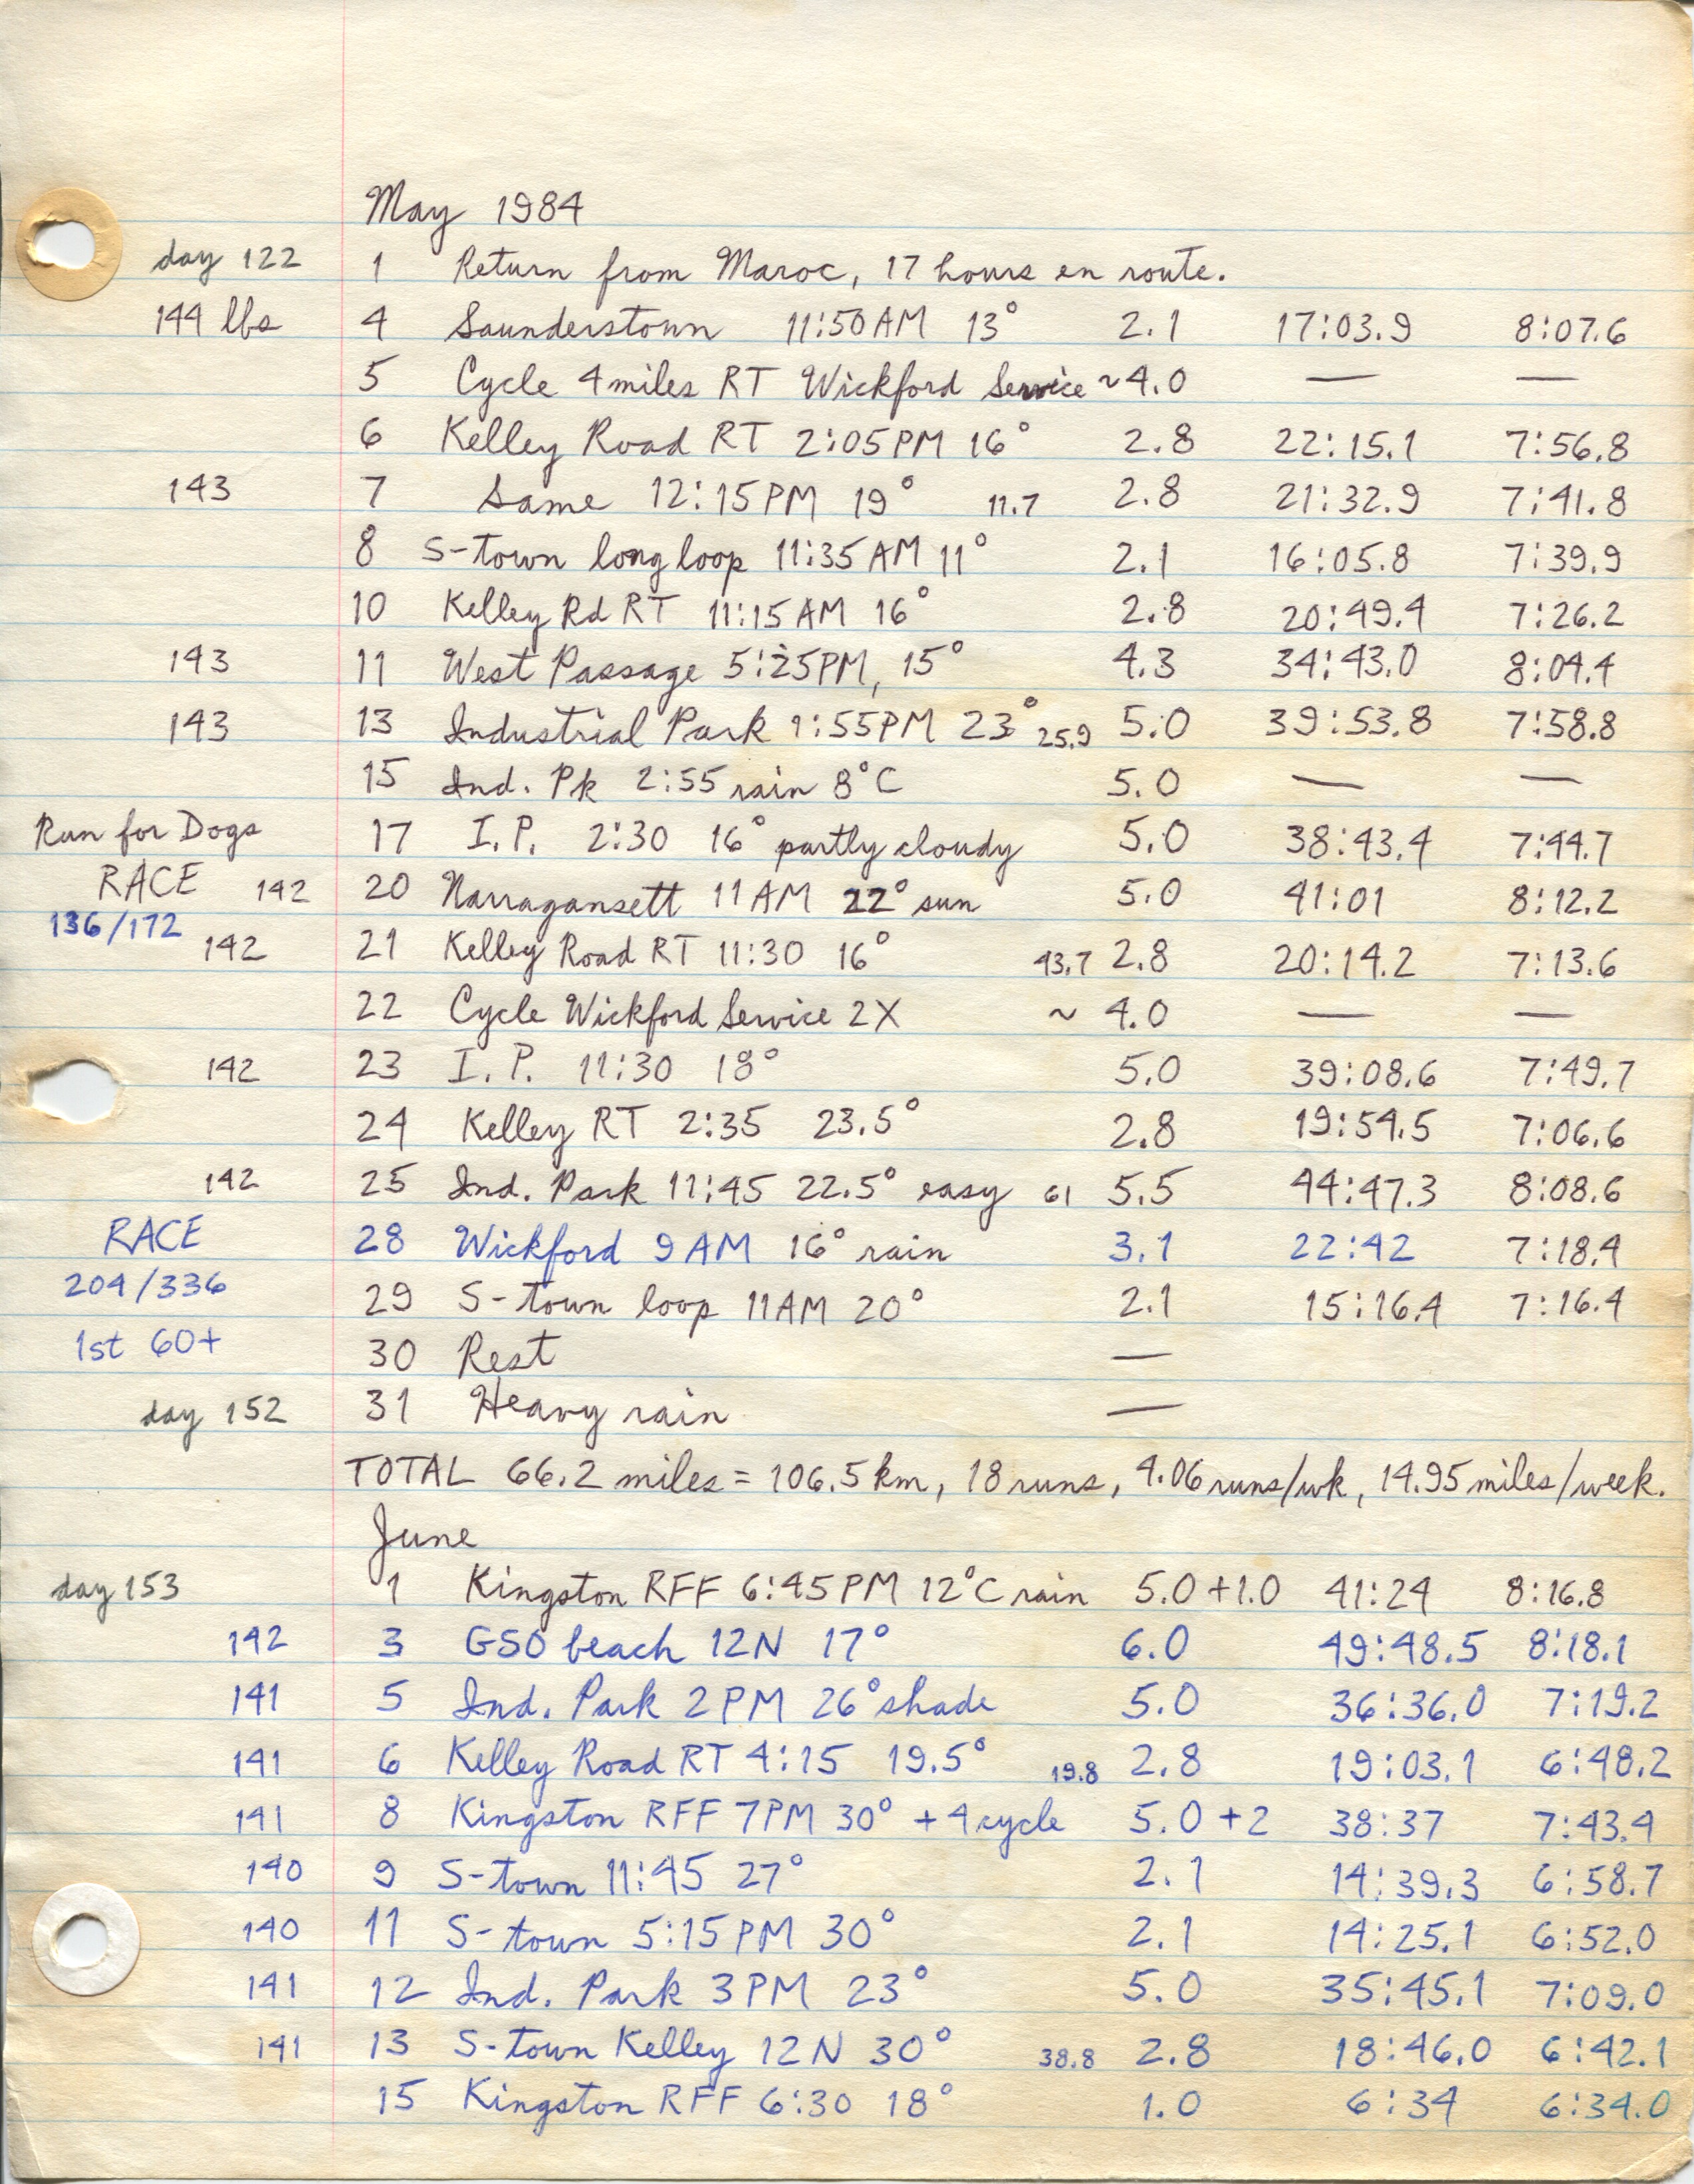 May 1984
day 122 1 Return from Maroc, 17 hours en route.
144 lbs 4 Saunderstown 11:50 AM 13° 2.1 17:03.9 8:07.6
5 Cycle 4 miles RT Wickford Service ~4.0 — —
6 Kelley Road RT 2:05 PM 16° 2.8 22:15.1 7:56.8
143 7 Same 12:15 PM 19° 11.7 2.8 21:32.9 7:41.8
8 S-town long loop 11:35 AM 11° 2.1 16:05.8 7:39.9
10 Kelley Rd RT 11:15 AM 16° 2.8 20:49.4 7:26.2
143 11 West Passage 5:25 PM, 15° 4.3 34:43.0 8:04.4
143 13 Industrial Park 1:55 PM 23° 25.9 5.0 39:53.8 7:58.8
15 Ind. Pk 2:55 rain 8°C 5.0 — —
Run for Dogs 17 I.P. 2:30 16° partly cloudy 5.0 38:43.4 7:44.7
RACE 142 20 Narragansett 11 AM 22° sun 5.0 41:01 8:12.2
136/172
142 21 Kelley Road RT 11:30 16° 43.7 2.8 20:14.2 7:13.6
22 Cycle Wickford Service 2X ~ 4.0 — —
142 23 I.P. 11:30 18° 5.0 39:08.6 7:49.7
24 Kelley RT 2:35 23.5° 2.8 19:54.5 7:06.6
142 25 Ind. Park 11:45 22.5° easy 61 5.5 44:47.3 8:08.6
RACE 28 Wickford 9 AM 16° rain 3.1 22:42 7:18.4
204/336 29 S-town loop 11 AM 20° 2.1 15:16.4 7:16.4
1st 60+ 30 Rest —
day 152 31 Heavy rain —
TOTAL 66.2 miles = 106.5 km, 18 runs, 4.06 runs/wk, 14.95 miles/week.
June
day 153 1 Kingston RFF 6:45 PM 12°C rain 5.0 + 1.0 41:24 8:16.8
142 3 GSO beach 12N 17° 6.0 49:48.5 8:18.1
141 5 Ind. Park 2 PM 26° shade 5.0 36:36.0 7:19.2
141 6 Kelley Road RT 4:15 19.5° 19.8 2.8 19:03.1 6:48.2
141 8 Kingston RFF 7PM 30° + 4 cycle 5.0 + 2 38:37 7:43.4
140 9 S-town 11:45 27° 2.1 14:39.3 6:58.7
140 11 S-town 5:15 PM 30° 2.1 14:25.1 6:52.0
141 12 Ind. Park 3 PM 23° 5.0 35:45.1 7:09.0
141 13 S-town Kelley 12 N 30° 38.8 2.8 18:46.0 6:42.1
15 Kingston RFF 6:30 18° 1.0 6:34 6:34.0